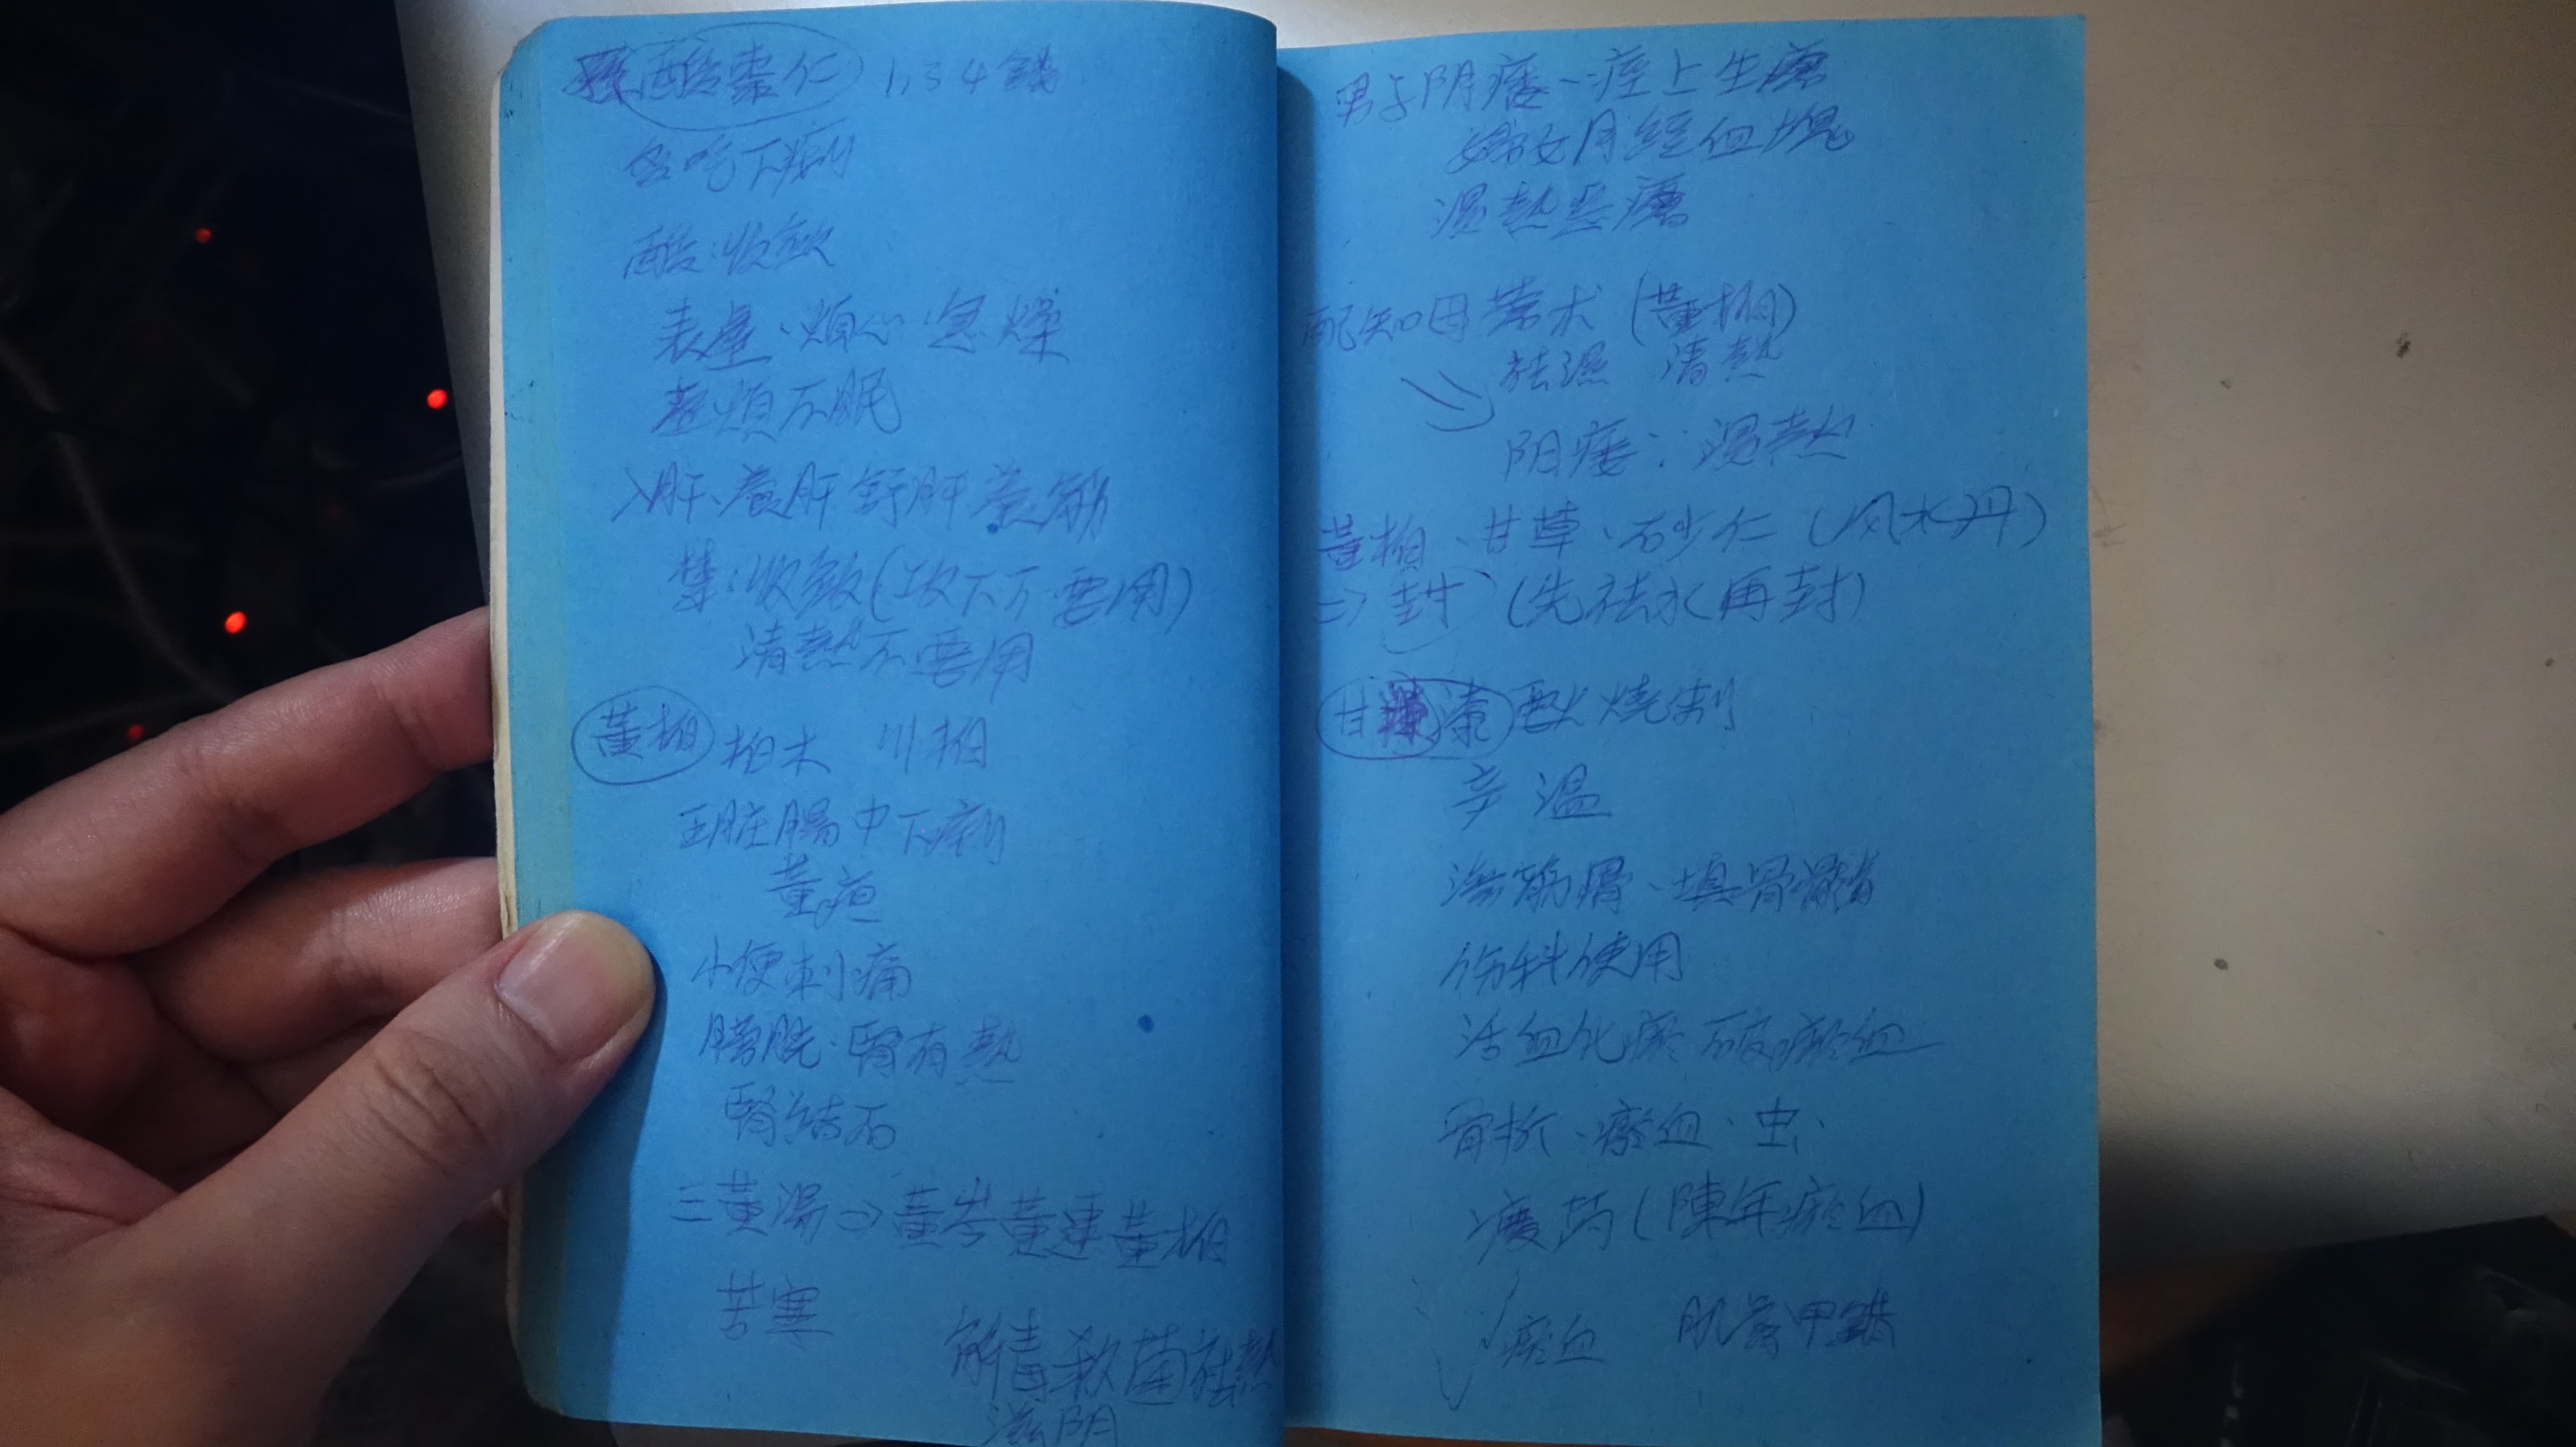 酸棗仁 1,3 4錢
多吃下痢
酸:收斂
表虛、煩心、急燥
虛煩不眠
入肝、養肝 舒肝 養筋
禁:收斂(攻下不要用)
清熱不要用
黃柏 柏木 川柏
五脏腸中下痢
黃疸
小便刺痛
膀胱、腎有熱
腎結石
三黃湯⇒黃岑黃連黃柏
苦寒
解毒殺菌祛熱
滋阴
男子阴痿--痓上生瘡
婦女月經血塊
濕熱惡瘡
配知母 蒼朮 (黃柏)
祛濕 清熱
阴痿:濕熱
黃柏、甘草、砂仁 (风水丹)
⇒ 封 (先祛水再封)
甘漆 要火燒制
辛溫
筋骨、填骨髓
伤科使用
活血化瘀 破瘀血
骨折、瘀血、虫、
(陳年瘀血)
瘀血 肌膚甲錯